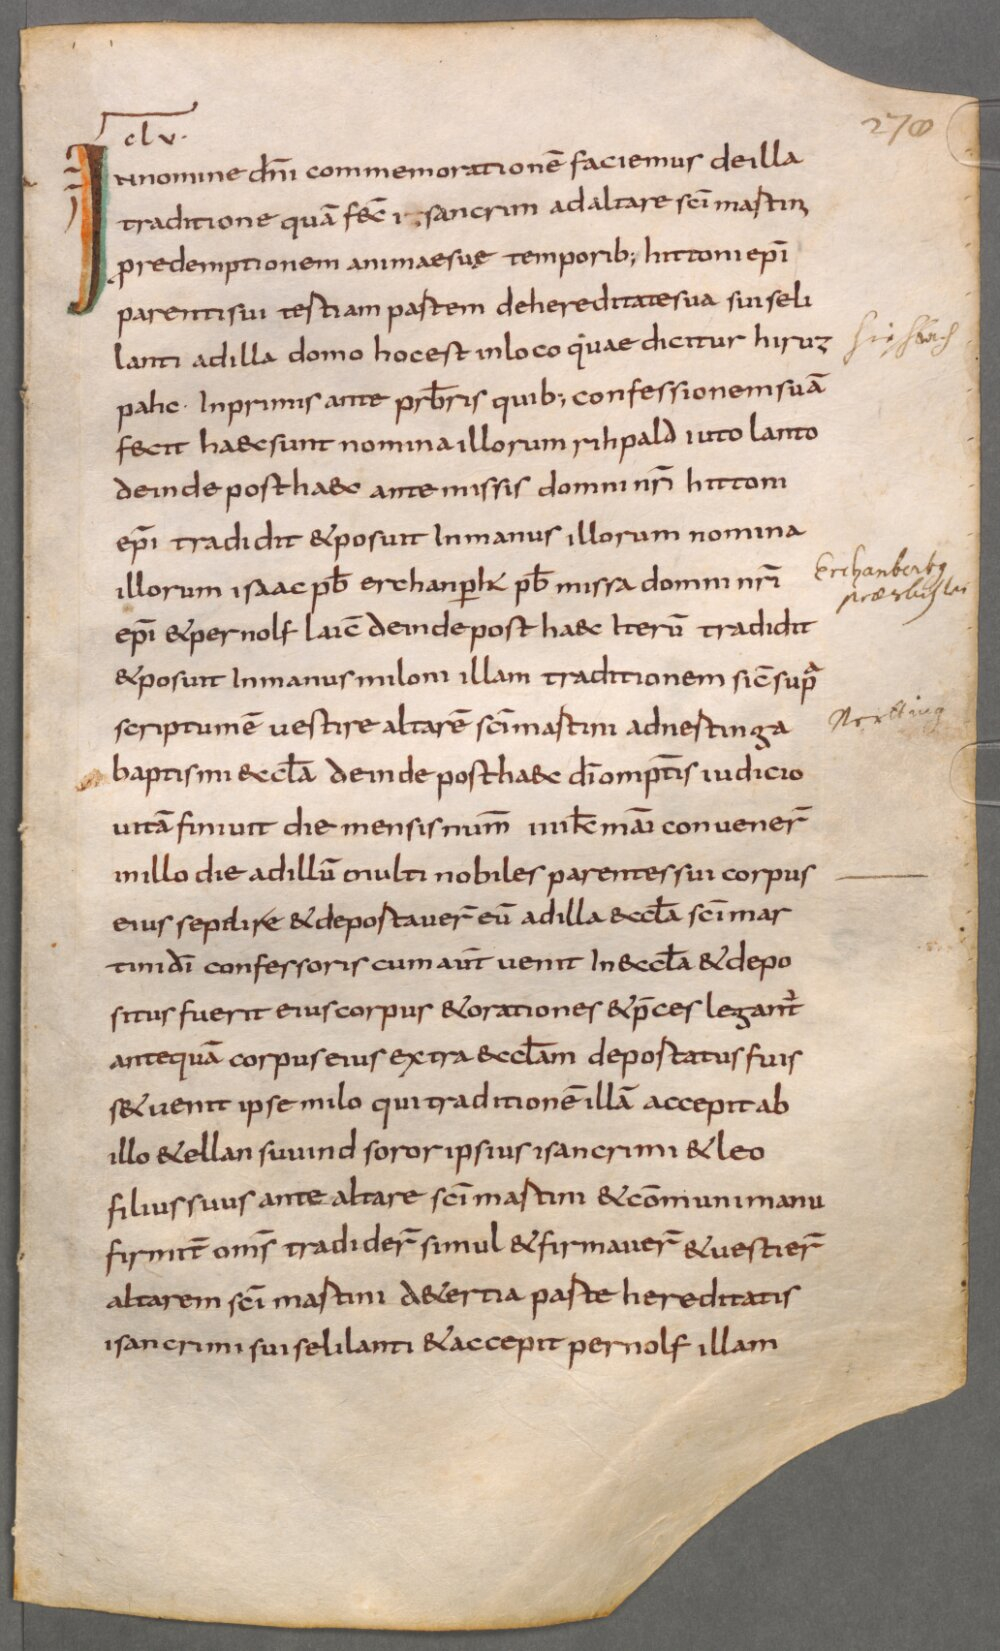 clv.
270
In nomine dñi commemorationē faciemus deilla
traditione quā fec̄ isancrim adaltare sc̄i mastin
predemptionem animaesuę temporib; hittoni ep̄i
parentisui testiam pastem dehereditatesua suiseli
lanti adilla domo hocest inloco quae dicitur hiruz
hirshbach
pahc. Inprimis ante prb̄ris quib; confessionemsuā
f&cit ha&csunt nomina illorum rihpald iuto lanto
deinde postha&c ante missis domni nr̄i hittoni
ep̄i tradidit &posuit Inmanus illorum nomina
illorum isaac pb̄ erchanperht pb̄ missa domni nr̄i
Erchanbertg
ep̄i &pernolf laic̄ deindepost ha&c Iterū tradidit
&posuit Inmanusmiloni illam traditionem sic̄ supra
scriptumē vestire altarē sc̄imastini adnestinga
Nertting
baptismi&ccl̄a deinde postha&c dīomp̄tis iudicio
uitā finiuit die mensisnum̄ iiiikl̄ māi convener̄
inillo die adillū multi nobiles parentessui corpus
eius sepelire &depostaver̄ eū adilla &ccl̄a sc̄imar
tini dī confessoris cum aut̄ venit In&ccl̄a &depo
situs fuerit eiuscorpus &orationes &p̄ces legant̄
antequā corpuseius extra &ccl̄am depostatus fuis
s&uenit ipse milo qui traditionē illā accepit ab
illo &ellan suuind soror ipsius isancrimi &leo
filiussuus ante altare sc̄imastini &cōmunimanu
firmit̄ oms̄ tradider̄ simul &firmaver̄ &vestier̄
altarem sc̄i mastini d&ertia paste hereditatis
isancrimi suiselilanti &accepit pernolf illam